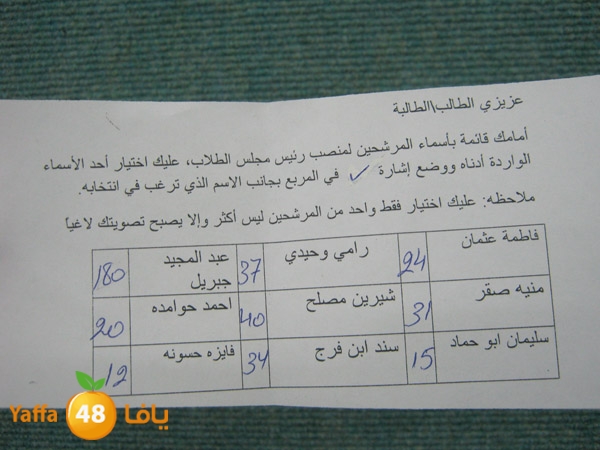 عزيزي الطالب\الطالبة
أمامك قائمة بأسماء المرشحين لمنصب رئيس مجلس الطلاب، عليك اختيار أحد الأسماء
الواردة أدناه ووضع إشارة ✓ في المربع بجانب الاسم الذي ترغب في انتخابه.
ملاحظه: عليك اختيار فقط واحد من المرشحين ليس أكثر وإلا يصبح تصويتك لاغياً
فاطمة عثمان 24 رامي وحيدي 37 عبد المجيد جبريل 180
منيه صقر 31 شيرين مصلح 40 احمد حوامده 20
سليمان ابو حماد 15 سند ابن فرج 34 فايزه حسونه 12
Yaffa 48 يافا